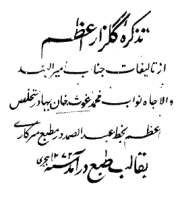 تذکرہ گلزار اعظم
از تالیفات جناب امیر الہند
والا جاہ نواب محمد غوث خان بہادر متخلص
اعظم بخط عبد الصمد در مطبع سرکاری
بقالب طبع در آمد ١٢٧٢ ہجری